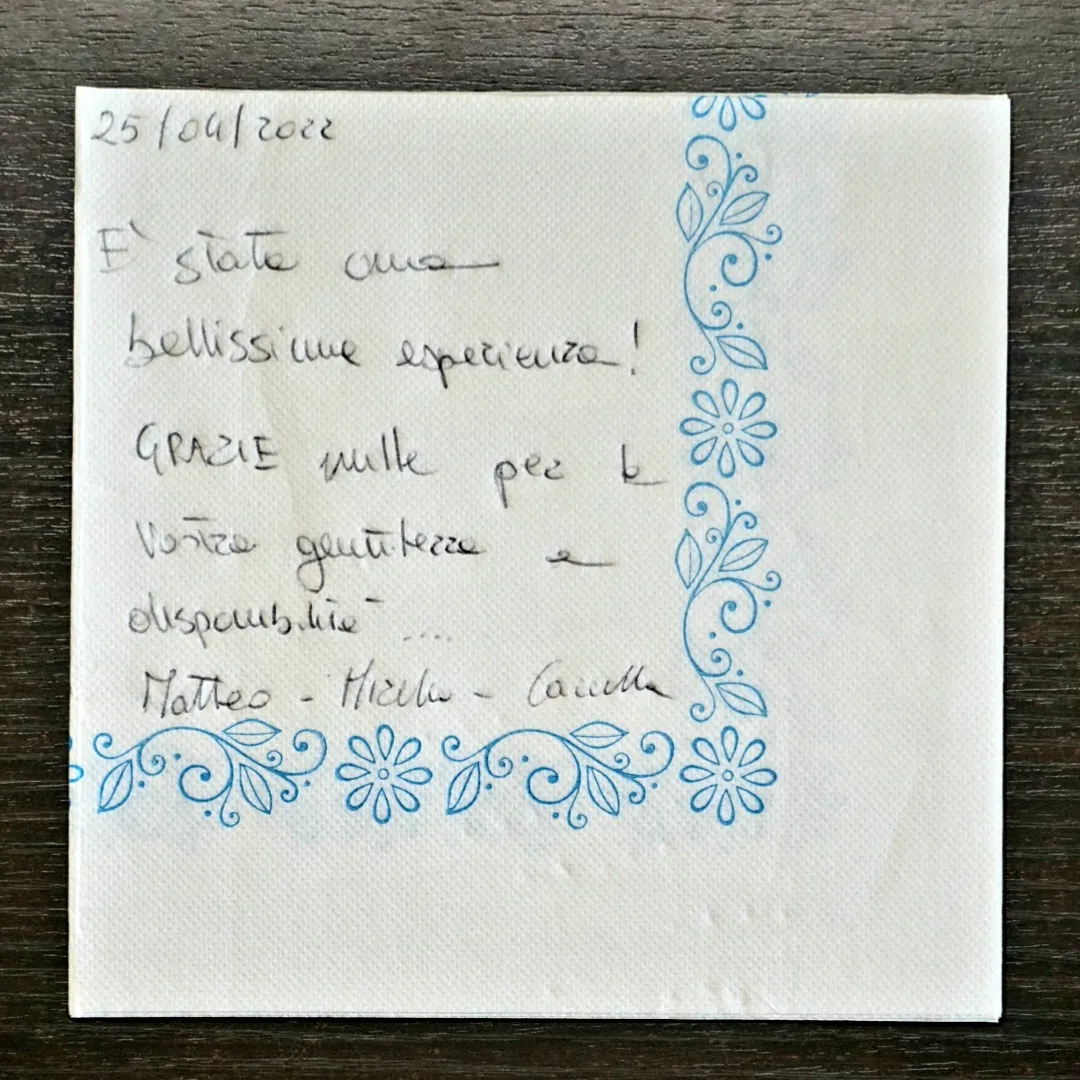 25/04/2022
E' stata una
bellissima esperienza!
GRAZIE mille per la
Vostra gentilezza e
disponibilità ....
Matteo - Mirella - Camilla